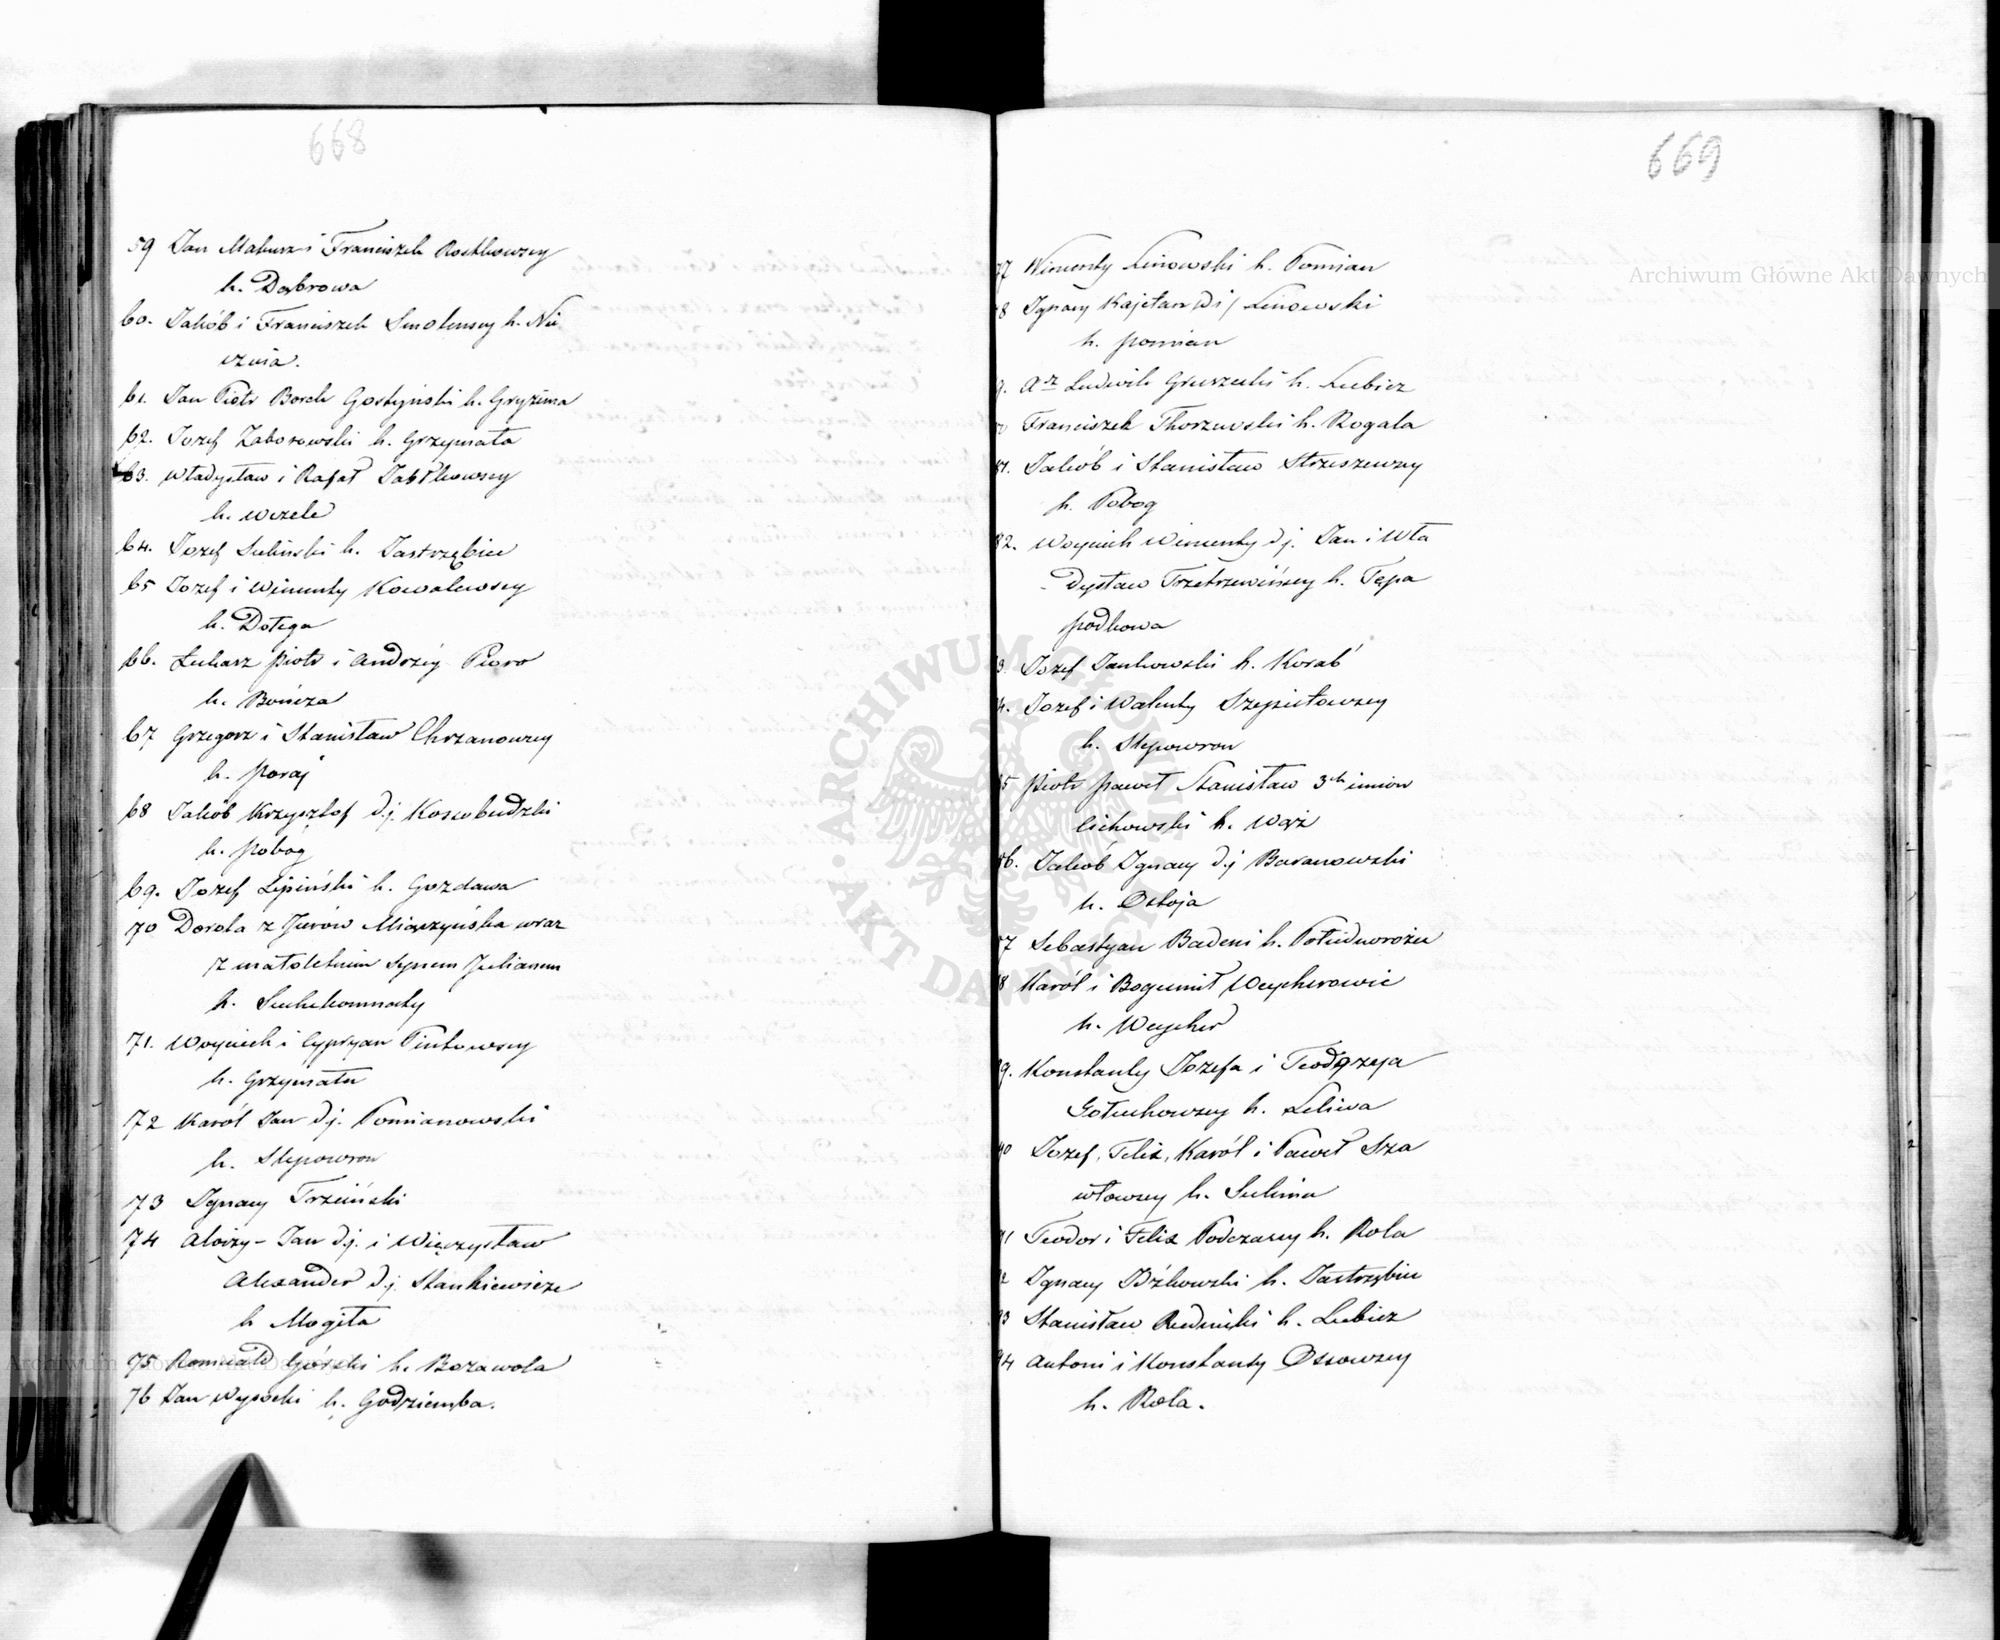 668
59 Jan Mateusz i Franciszek Rostkowscy
h. Dąbrowa
60. Jakób i Franciszek Smoleńscy h. Nie
czuia.
61. Jan Piotr Borch Gostyński h. Gryzima
62. Jozef Zaborowski h. Grzymała
63. Władysław i Rafał Jabłkowscy
h. Wczele
64. Jozef Suliński h. Jastrzębiec
65 Jozef i Wincenty Kowalewscy
h. Dołęga
66. Łukasz Piotr i Andrzéy Pioro
h. Bończa
67 Grzegorz i Stanisław Chrzanowscy
h. Poraj
68 Jakób Krzysztof d.j. Kossobudzki
h. Pobóg
69. Jozef Lipiński h. Gozdawa
70 Dorota z Jurów Miączyńska wraz
z małoletnim synem Julianem
h. Suchekomnaty
71. Woyciech i Cypryan Piutowscy
h. Grzymała
72 Karól Jan d.j. Pomianowski
h. Slepowron
73 Ignacy Trzciński
74 Aloizy - Jan d.j. i Więczysław
Alexander d.j. Stankiewicze
h Mogiła
75 Romuald Górski h. Bozawola
76 Jan Wysocki h. Godziemba.
669
77 Wincenty Linowski h. Pomian
78 Ignacy Kajetan /d i/ Linowski
h. Pomian
9. Ludwik Gruszecki h. Lubicz
Franciszek Thorzewski h. Rogala
81. Jakób i Stanisław Strzeszewscy
h. Pobog
82. Woyciech Wincenty d.j. Jan i Wła
dysław Trzetrzewińscy h. Tępa
podkowa
3. Jozef Jankowski h. Korab
4. Jozef i Walenty Szepietowscy
h. Slepowron
85 Piotr Paweł Stanisław 3ch imion
Cichowski h. Wąż
86. Jakób Ignacy d.j Baranowski
h. Ostoja
87 Sebastyan Badeni h. Połudworożu
8 Karól i Bogumił Weycherowie
h. Weyher
9. Konstanty Jozefa i Teod
Gołuchowscy h. Leliwa
90 Jozef, Felix, Karól i Paweł Sza
włowscy h. Sulima
91 Teodor i Felix Podczascy h. Rola
2 Ignacy Bźkowski h. Jastrzębiec
93 Stanisław Rudnicki h. Lubicz
94 Antoni i Konstanty Ossowscy
h. Rola.
Archiwum Główne Akt Dawnych
ARCHIWUM GŁÓWNE AKT DAWNYCH